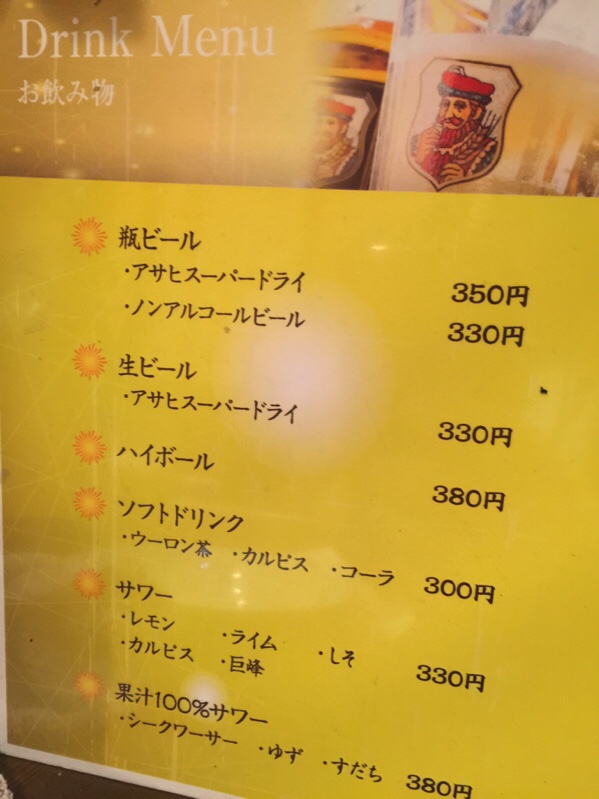 Drink Menu
お飲み物
瓶ビール
・アサヒスーパードライ 350円
・ノンアルコールビール 330円
生ビール
・アサヒスーパードライ 330円
ハイボール 380円
ソフトドリンク
・ウーロン茶 ・カルピス ・コーラ 300円
サワー
・レモン ・ライム ・しそ
・カルピス ・巨峰 330円
果汁100%サワー
・シークワーサー ・ゆず ・すだち 380円